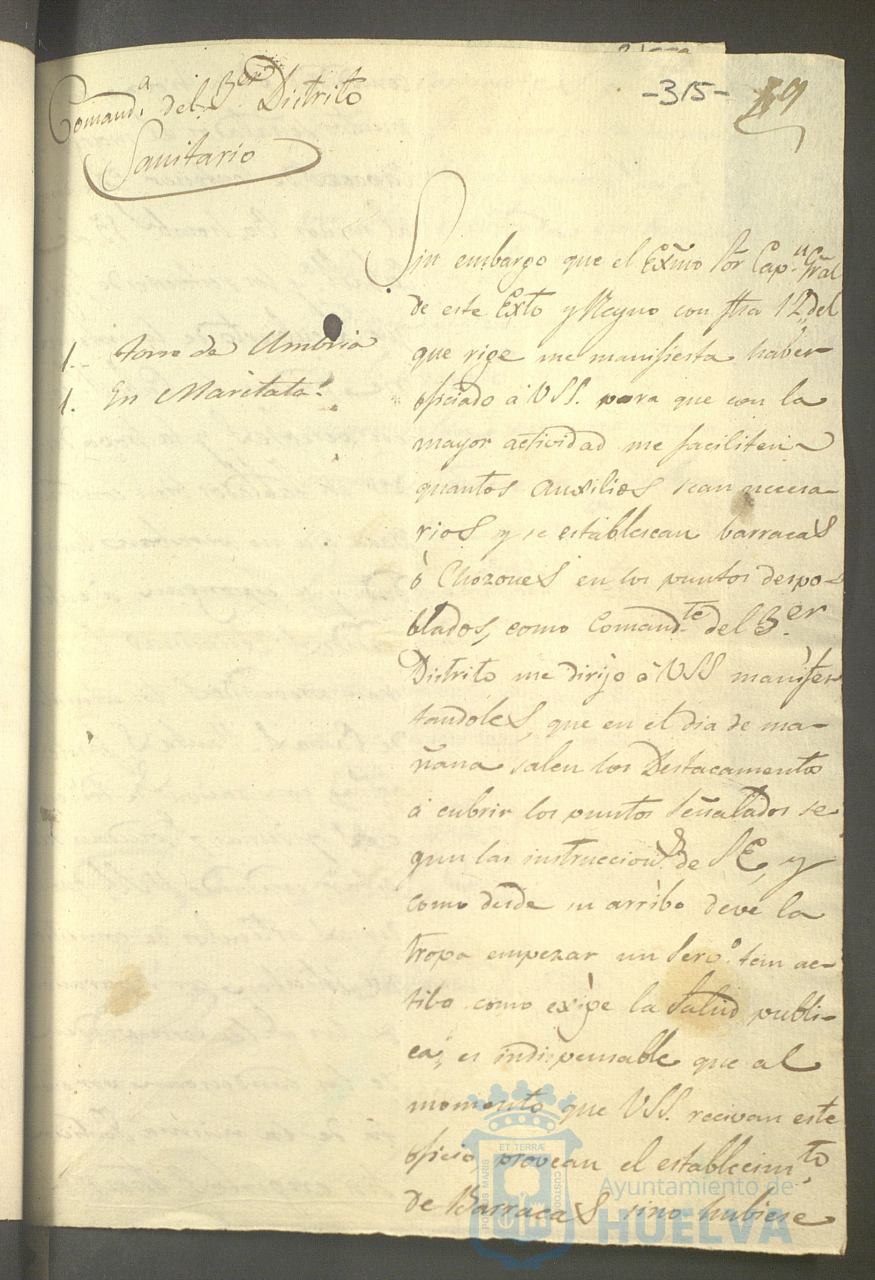 -315- 19
Comand.ª del 3er Distrito
Sanitario
1. torre de Umbria
1. En Maritata.
Sin embargo que el Exmo Sor Cap.n Gral
de este Exto y Reyno con fha 12 del
que rige me manifiesta haber
oficiado á USS. para que con la
mayor actividad me faciliten
quantos auxilios sean necesa-
rios y se establescan barracas
ò Chozones en los puntos despo-
blados, como Comand.te del 3.er
Distrito me dirijo à USS manifes
tandoles, que en el dia de ma-
ñana salen los Destacamentos
á cubrir los puntos Señalados se-
gun las instruccion.s de S E, y
como desde su arribo deve la
tropa empezar un Serv.o tan ac-
tibo como exige la Salud publi-
ca, es indispensable que al
momento que USS. recivan este
oficio, provean el establecim.to
de Barracas sino hubiese
PORTUS MARIS ET TERRÆ CUSTODIA
Ayuntamiento de
HUELVA